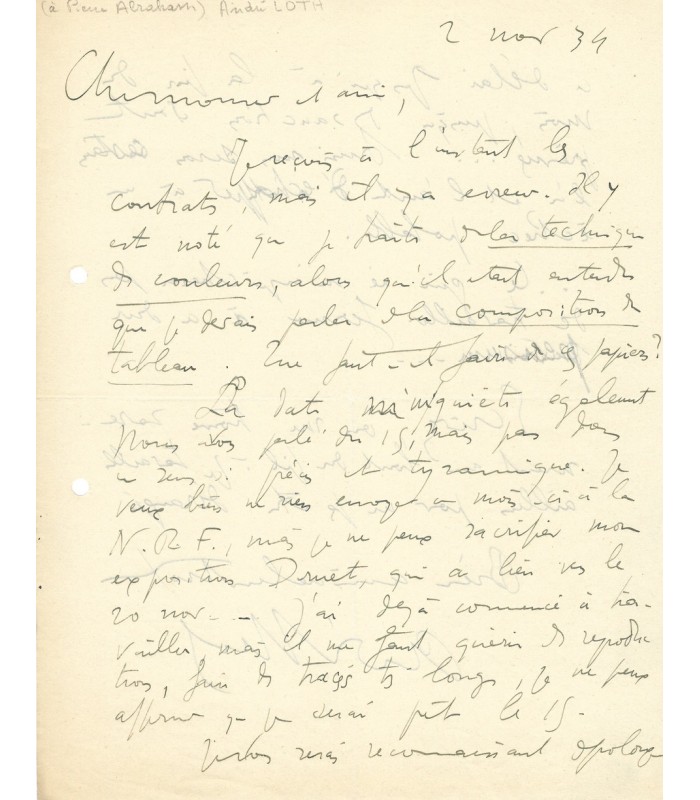 (à Pierre Abraham) André LOTH
2 nov 34
Cher monsieur et ami,
Je reçois à l'instant les
contrats, mais il y a erreur. Il y
est noté que je traite de la technique
des couleurs, alors qu'il était entendu
que je devais parler de la composition du
tableau. Que faut-il faire de ces papiers?
La date m'inquiète également
Nous avons parlé du 15, mais pas dans
un sens si précis et tyrannique. Je
veux bien ne rien envoyer ce mois-ci à la
N.R.F., mais je ne peux sacrifier mon
exposition Druet, qui a lieu vers le
20 nov. - J'ai déjà commencé à tra-
vailler, mais il me faut quérir des reproduc
tions, faire des tracés très longs, je ne peux
affirmer que je serai prêt le 15 -
Je vous serais reconnaissant de prolonger